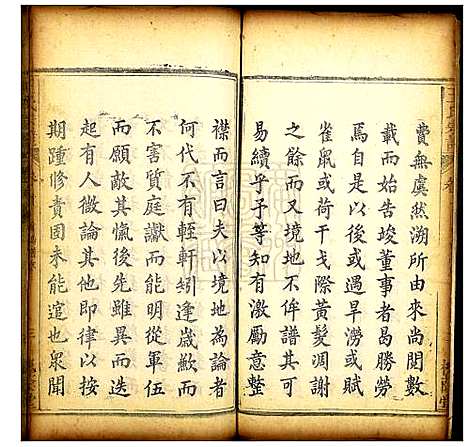 費無虞然溯所由來尚閱數
載而始告竣董事者曷勝勞
焉自是以後或遇旱澇或賦
雀鼠或荷干戈際黃髮凋謝
之餘而又境地不侔譜其可
易續乎予等知有激勵意整
襟而言曰夫以境地為論者
何代不有輊軒矧逢歲歉而
不害質庭讞而能從軍伍
而願敵其愾後先雖異而迭
起有人微論其他即律以按
期踵修責固未能逭也眾聞